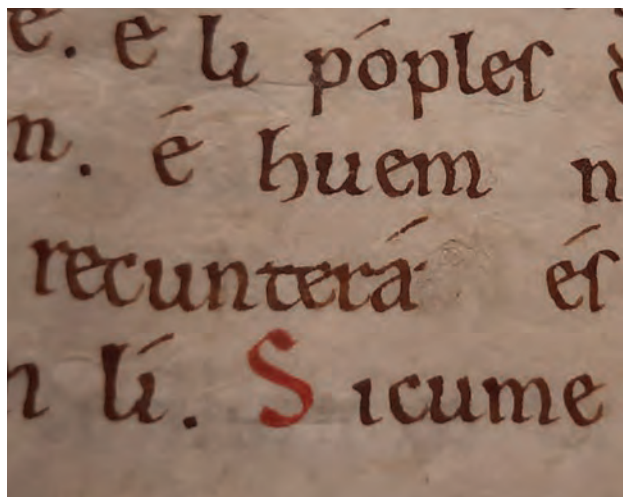 e. e li póples
n. é huem n
recunterá és
n lí. Sicume